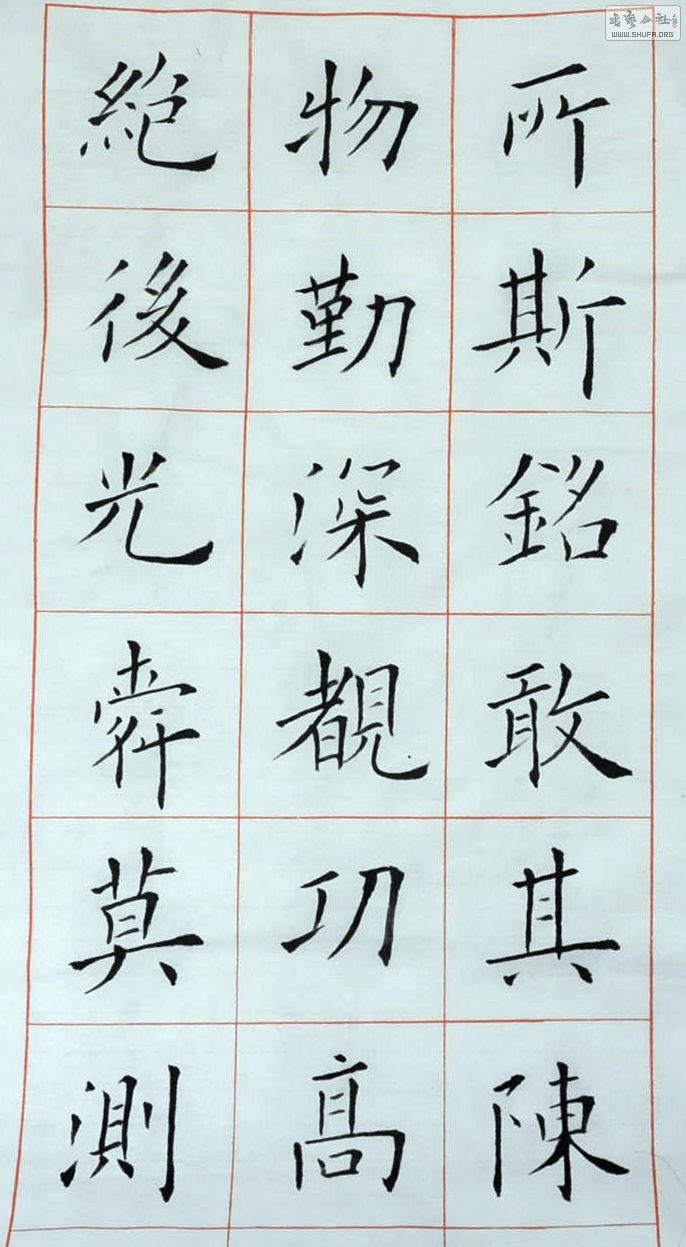 所斯銘敢其陳
物勤深覩功髙
絶後光莫測
书艺公社
WWW.SHUFA.ORG